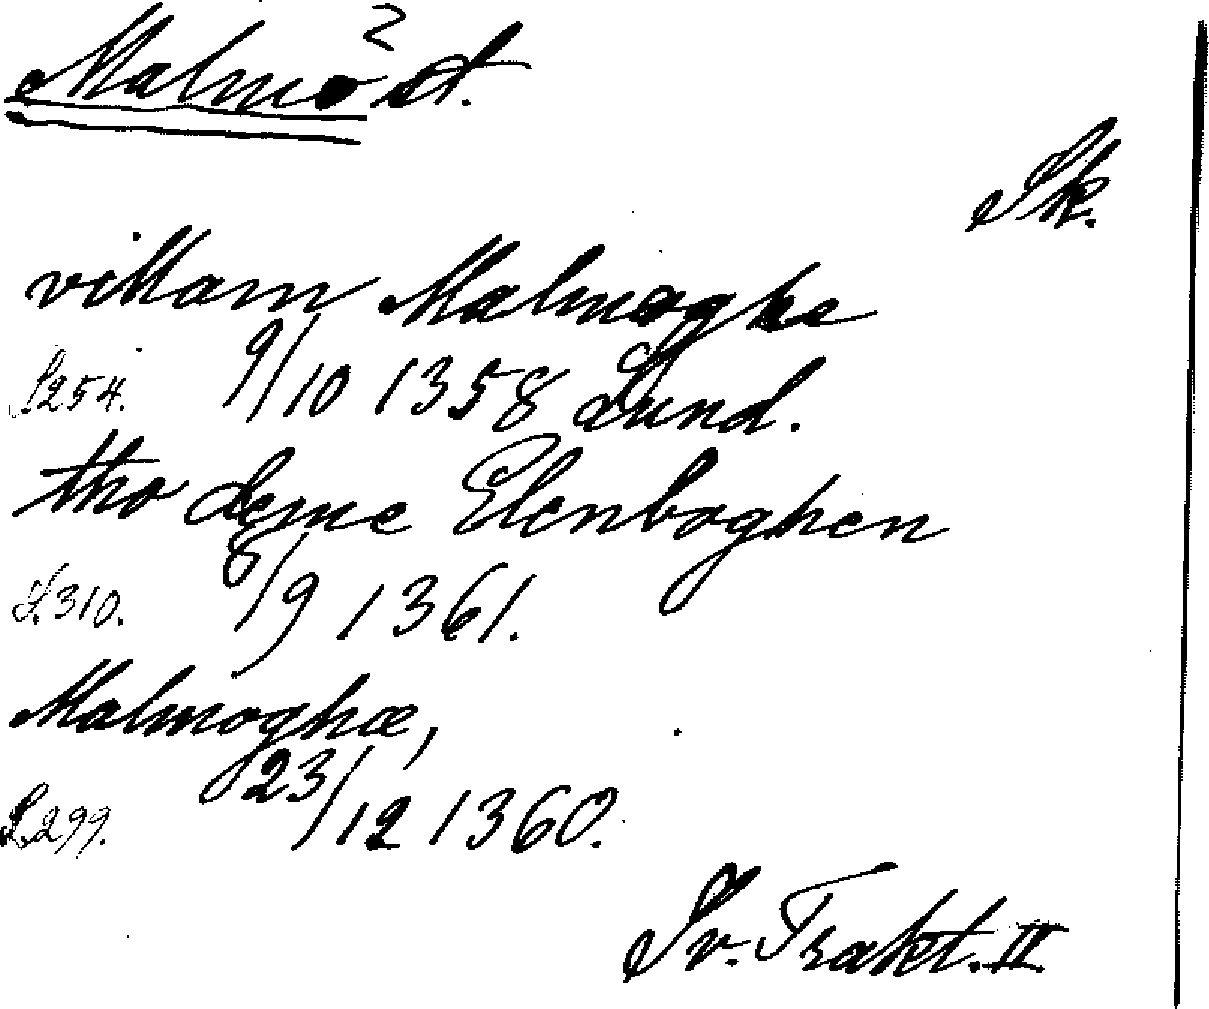 Malmö st.
Sk.
villam Malmoghe
S. 254. 9/10 1358 Lund.
tho deme Elenboghen
S. 310. 8/9 1361.
Malmoghæ,
S. 299. 23/12 1360.
Sv. Trakt. II